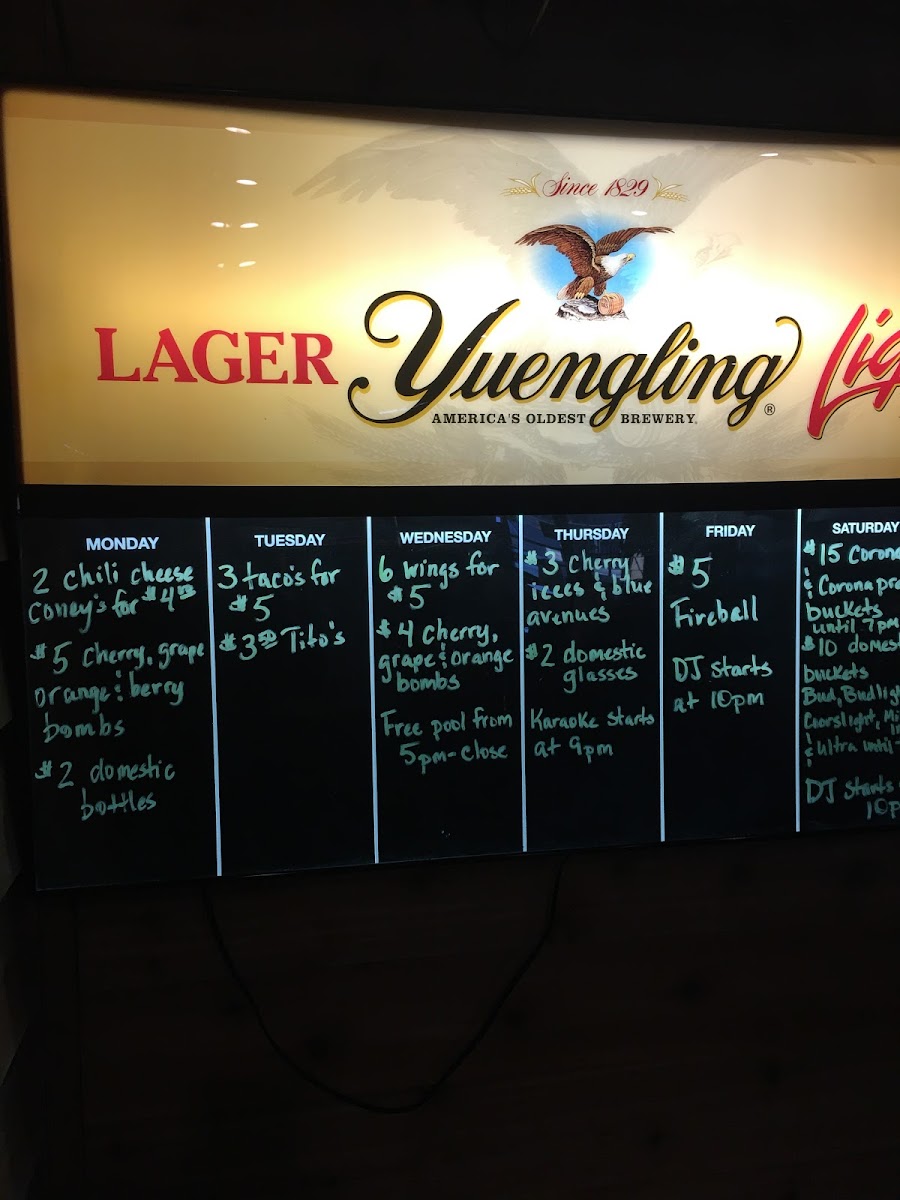 Since 1829
LAGER
Yuengling®
AMERICA'S OLDEST BREWERY
MONDAY
2 chili cheese
coney's for $4
$5 cherry, grape
orange & berry
bombs
$2 domestic
bottles
TUESDAY
3 taco's for
$5
$3.50 Tito's
WEDNESDAY
6 wings for
$5
$4 cherry,
grape & orange
bombs
Free pool from
5pm-close
THURSDAY
$3 Cherry
icees & blue
avenues
$2 domestic
glasses
Karaoke starts
at 9pm
FRIDAY
$5
Fireball
DJ starts
at 10pm
SATURDAY
$15 Corona
& Corona pre
buckets
until 7pm
$10 domes
buckets
Bud, Budligh
Coorslight, Mi
& Ultra until
DJ starts
10p